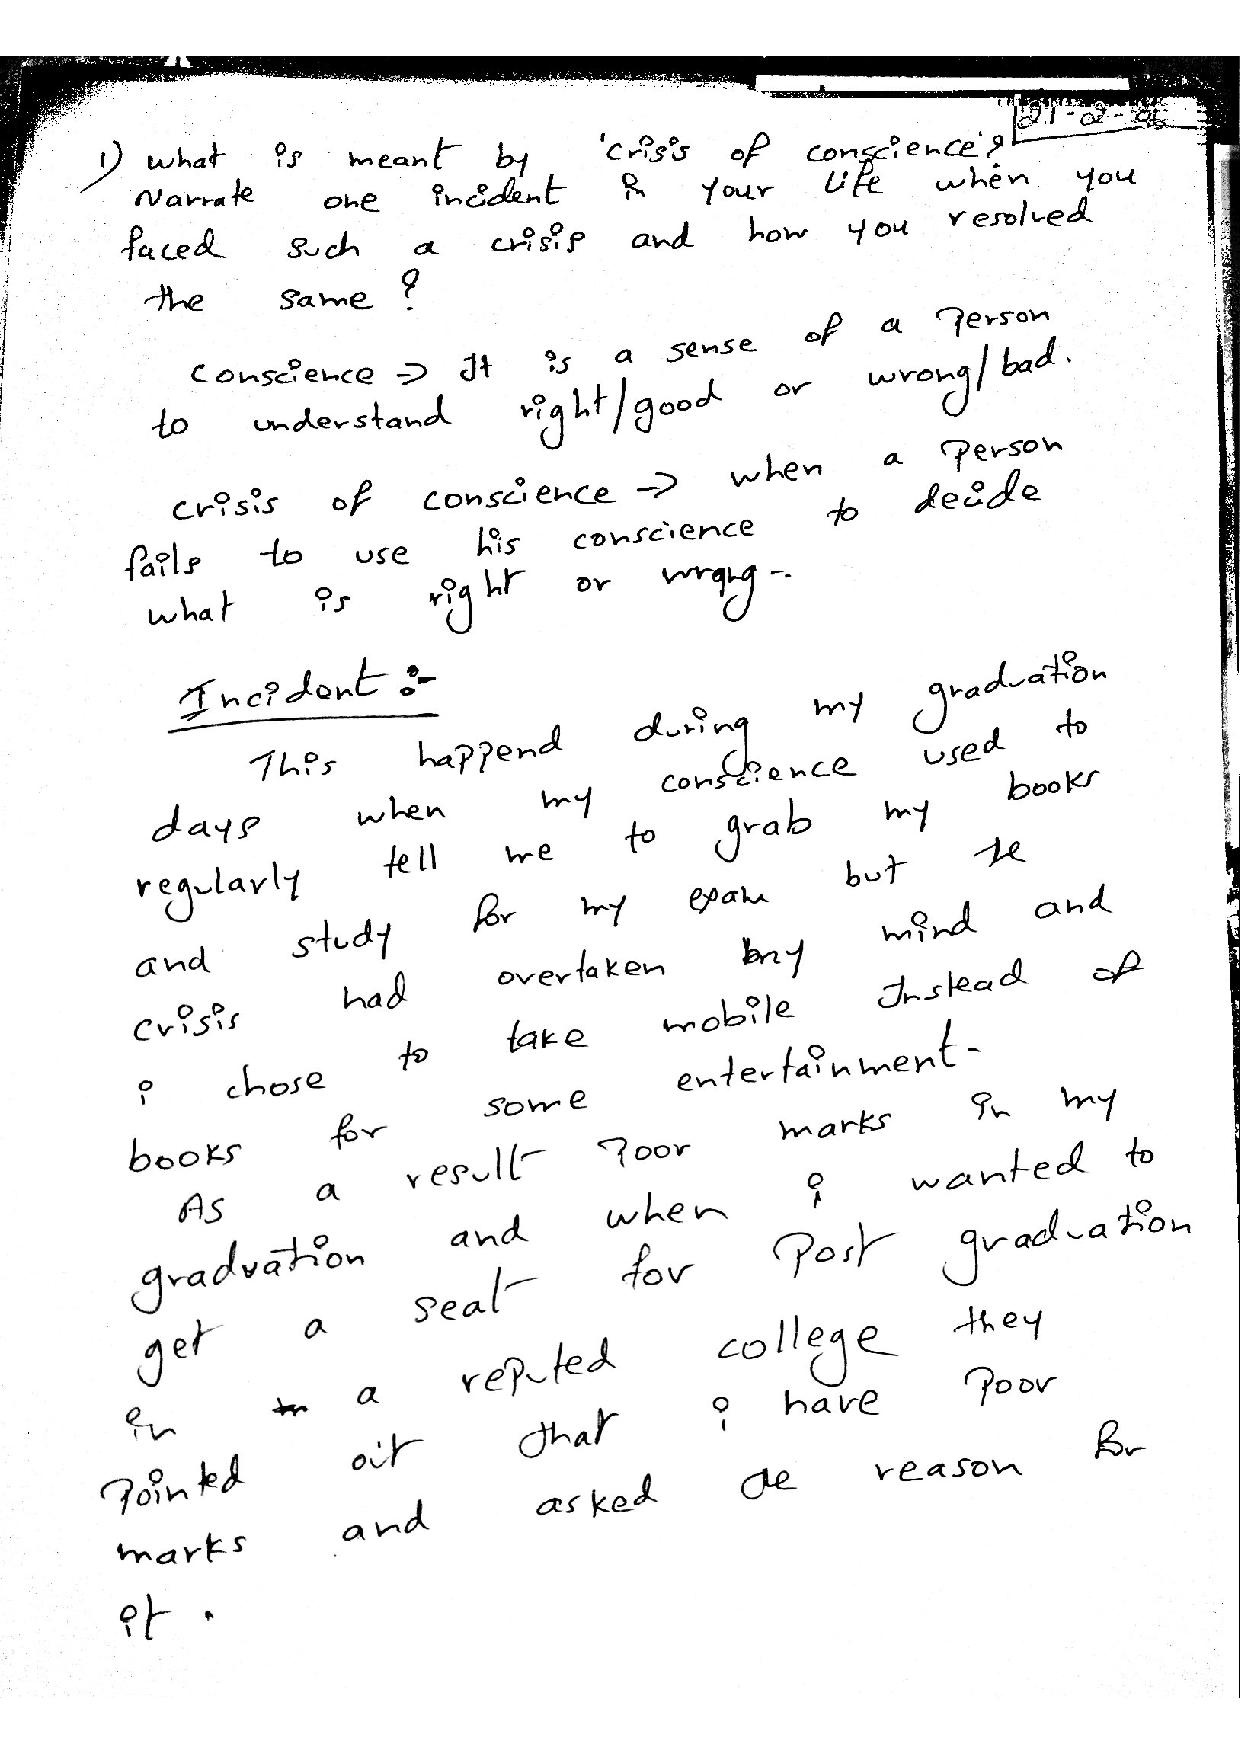 21-02-
1) what is meant by 'crisis of conscience'?
Narrate one incident in your life when you
faced such a crisis and how you resolved
the same?
conscience → It is a sense of a person
to understand right/good or wrong/bad.
crisis of conscience → when a person
fails to use his conscience to decide
what is right or wrong.
Incident :-
This happend during my graduation
days when my conscience used to
regularly tell me to grab my books
and study for my exam but the
crisis had overtaken my mind and
i chose to take mobile Instead of
books for some entertainment.
As a result poor marks in my
graduation and when i wanted to
get a seat for Post graduation
in a reputed college they
pointed out that i have poor
marks and asked the reason for
it.